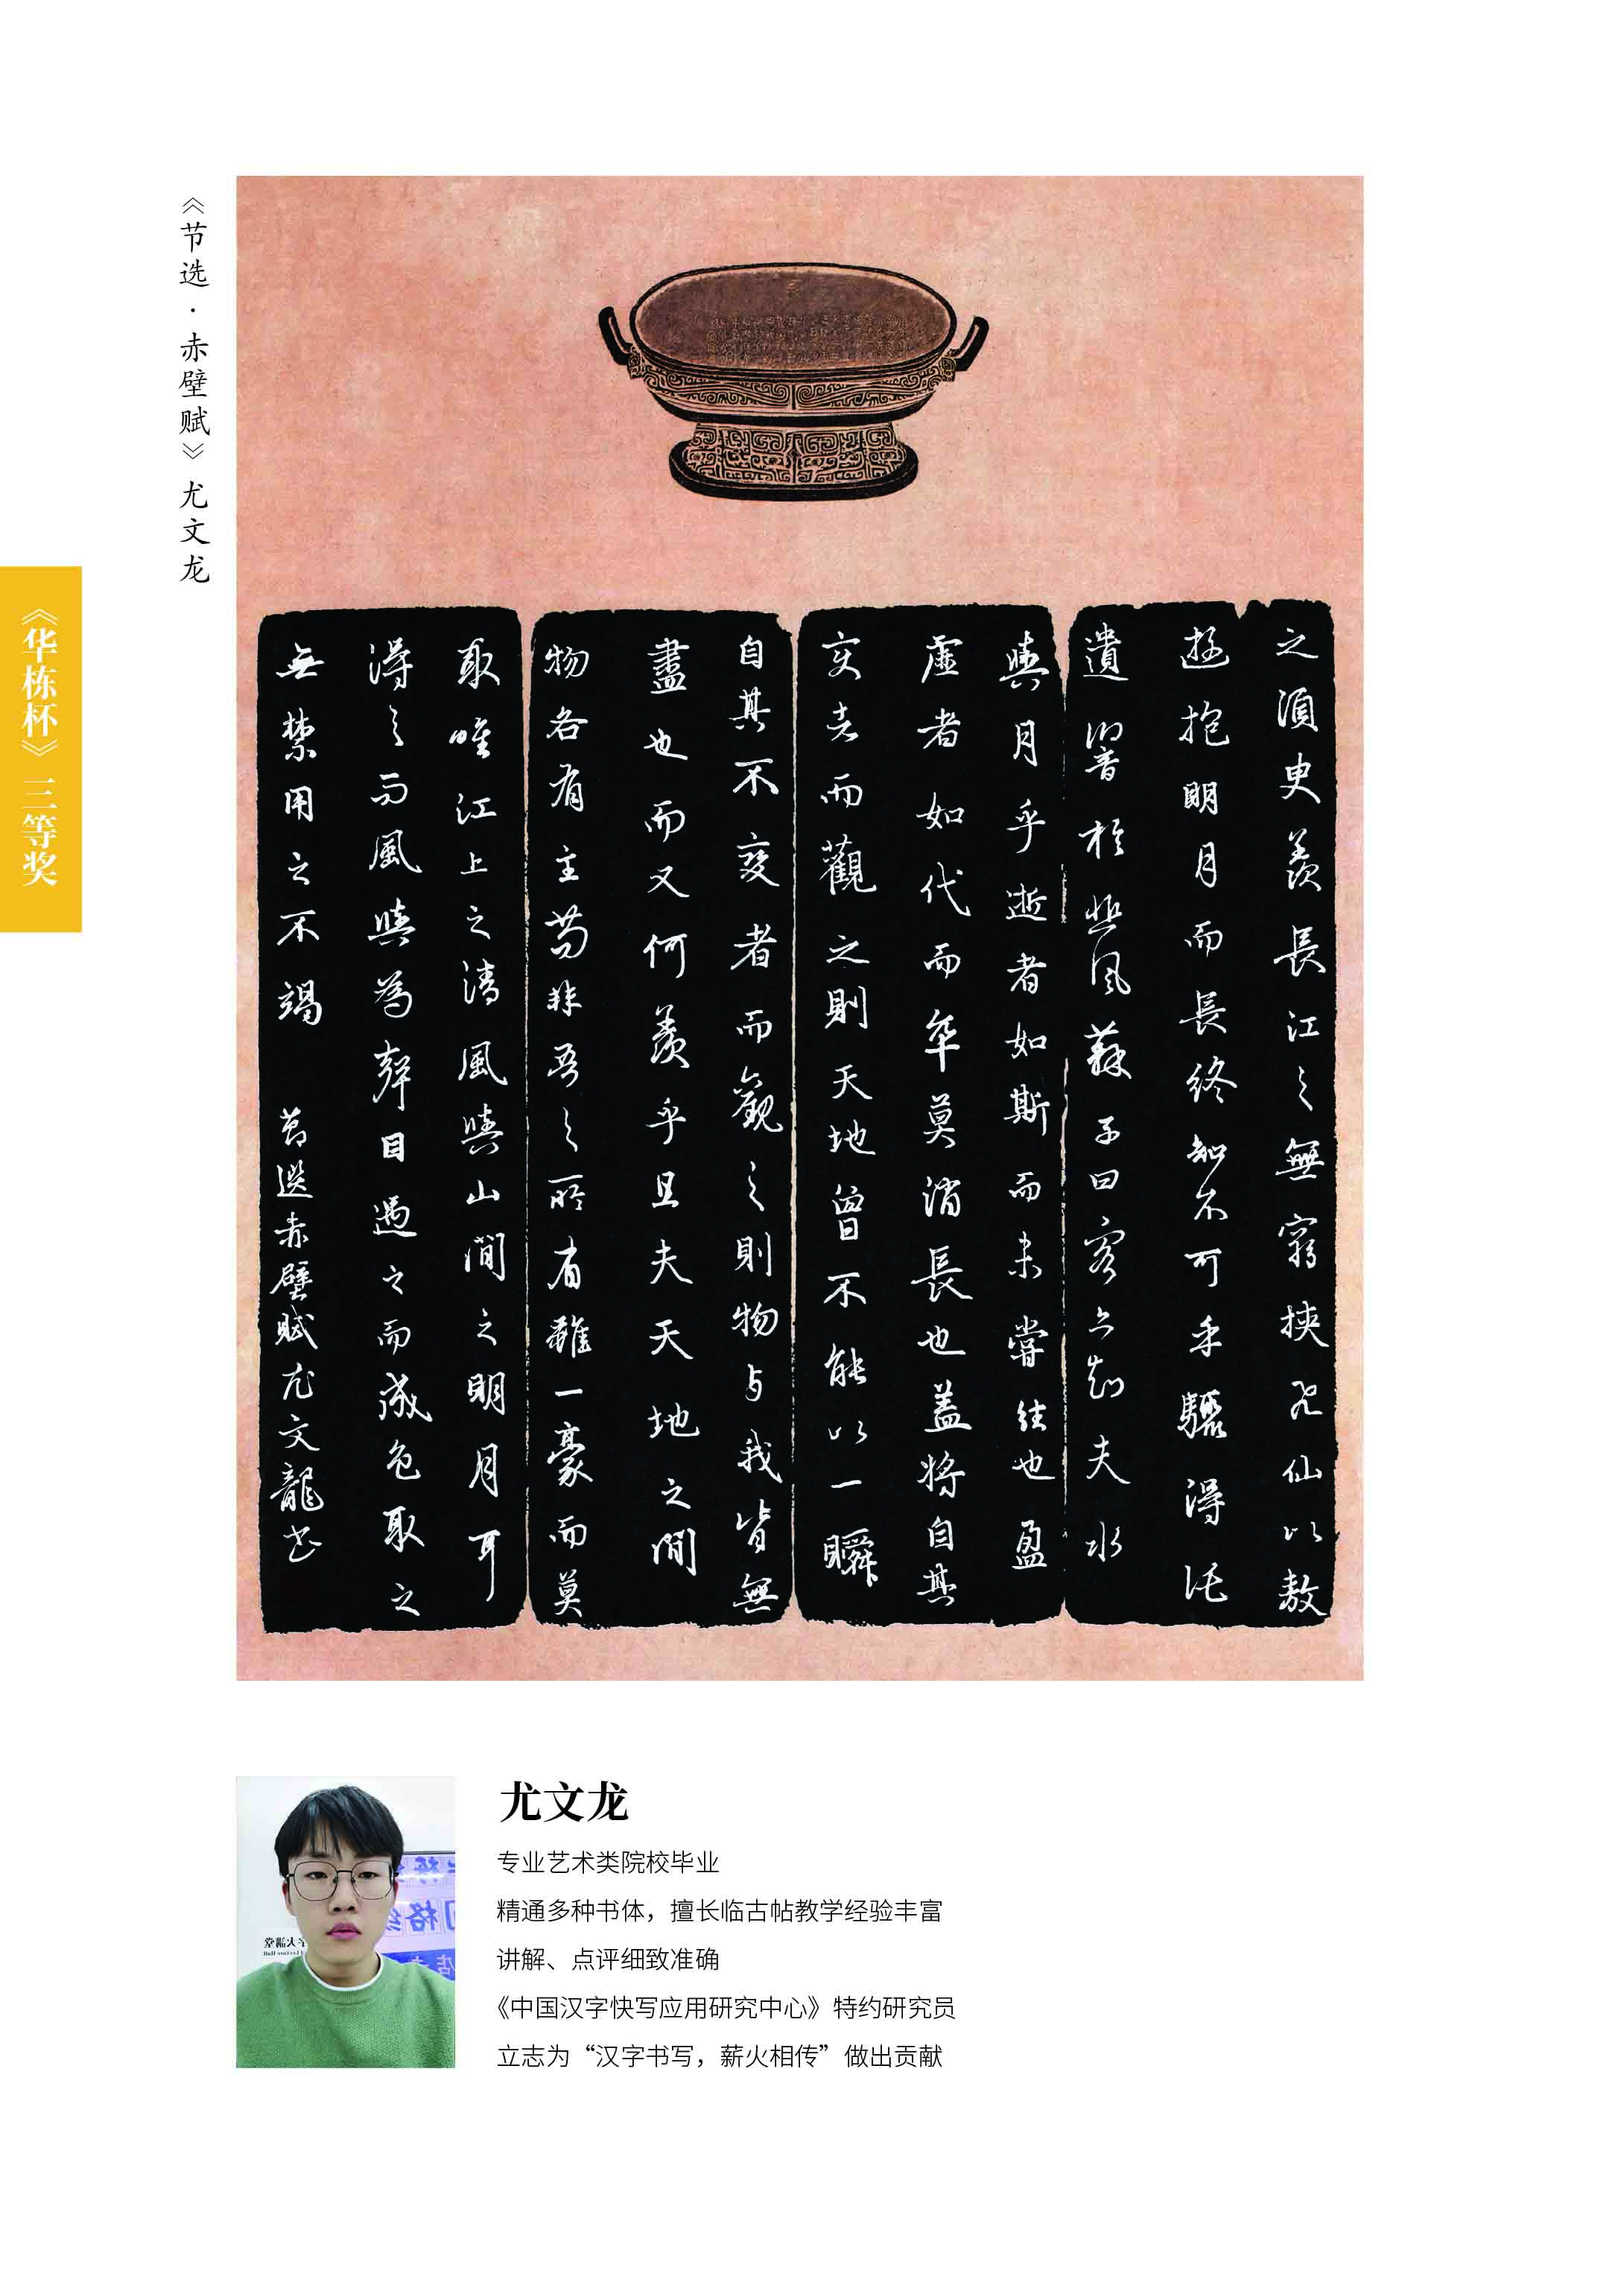 《节选·赤壁赋》尤文龙
《华栋杯》三等奖
之須臾羨長江之無窮挾飛仙以敖
遊抱明月而長終知不可乎驟得託
遺響於悲風蘇子曰客亦知夫水
與月乎逝者如斯而未嘗往也盈
虛者如代而卒莫消長也蓋將自其
變者而觀之則天地曾不能以一瞬
自其不變者而觀之則物与我皆無
盡也而又何羨乎且夫天地之間
物各有主苟非吾之所有雖一豪而莫
取唯江上之清風與山間之明月耳
得之而風與為聲目遇之而成色取之
無禁用之不竭 節選赤壁賦尤文龍书
尤文龙
专业艺术类院校毕业
精通多种书体，擅长临古帖教学经验丰富
讲解、点评细致准确
《中国汉字快写应用研究中心》特约研究员
立志为“汉字书写，薪火相传”做出贡献